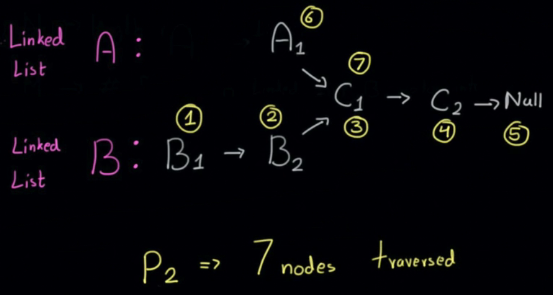 6
Linked List A: A1
7
C1 → C2 → Null
1 2 3 4 5
Linked List B: B1 → B2
P2 => 7 nodes traversed